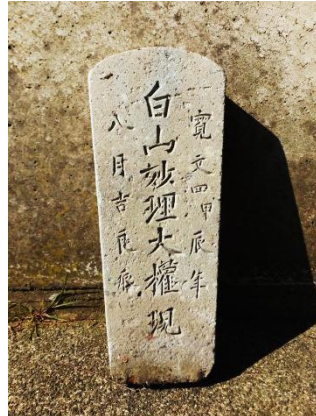 寛文四甲辰年
白山妙理大權現
八月吉辰